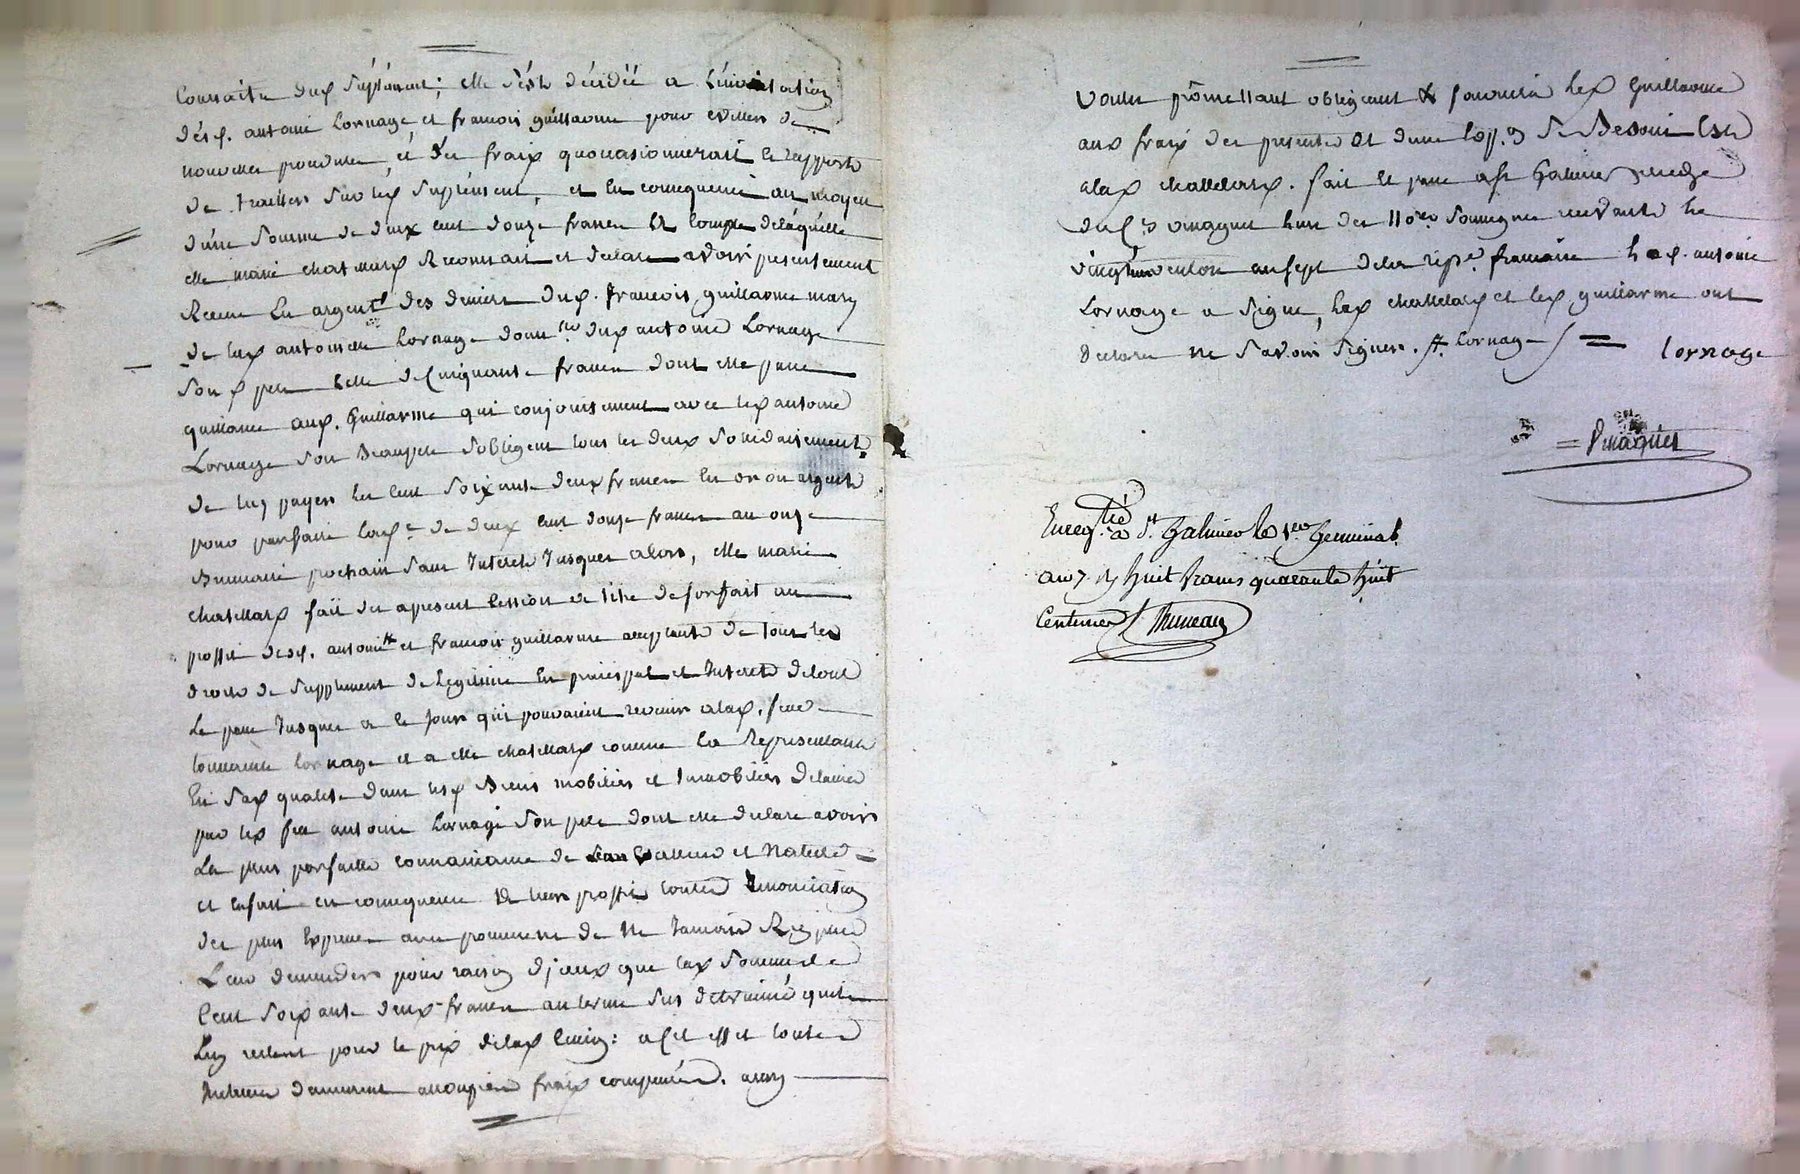 connaitre dud. suplément; elle s'est décidée a l'invitation
desd. antoine Lornage et francois guillarme pour eviter de
nouvelles procedures, et des fraix quoccasionnerait le rapport
de traitter sur led. suplément, et en consequence au moyen
d'une somme de deux cent douze francs a compte de laquelle
elle marie chatellard Reconnait et declare avoir presentement
Receue en argent des deniers dud. francois guillarme mary
de lad. antoinette Lornage donné dud. antoine Lornage
son d. pere celle de Cinquante francs dont elle passe
quittance aud. Guillarme qui conjointement avec led. antoine
Lornage son Beaupere s'obligent tous les deux solidairement
de luy payer les cent soixante deux francs en or ou argent
pour parfaire lad. de deux cent douze francs au onze
Brumaire prochain sans Interets Jusques alors, elle marie
chatellard fait des apresent Cession et titre de forfait au
proffit desd. antoine et francois guillarme acceptants de tous les
droits de supplement de Legitime En principal et Interets de tout
Le passé Jusques a ce Jour qui pouvaient revenir a lad. feue
Lornage et a elle chatellard comme la Representant
En sad. qualité dans lesd. Biens mobiliers et Immobiliers delaissés
par led. feu antoine Lornage son pere dont elle declare avoir
La plus parfaitte connaissance de Leur valleur et Nature
et en fait en consequence a leur proffit toutes Renonciations
des plus Expresses avec promesse de Ne Jamais Rien plus
Leur demander pour raison d'jceux que lad. somme de
Cent soixante deux francs au terme sus determiné qui
Luy restent pour le prix de lad. Cession: a Cet effet toutes
demeurent assoupies fraix compensés. ainsy
voulu promettant obligeant & soumis led. Guillarme
aux fraix des presentes et d'une
a lad. chatellard. fait et passé a st Galmier
vinaguet L'un des Nores soussignés
ventose an sept de la Repe francaise Led. antoine
Lornage a signé, Lad. chatellard et led. guillarme ont
declaré ne savoir signer. A. Lornage
Lornage
Vinaguet
Enregtré a St. Galmier le 1er Germinal
an 7 Rç huit francs quarante huit
Centimes